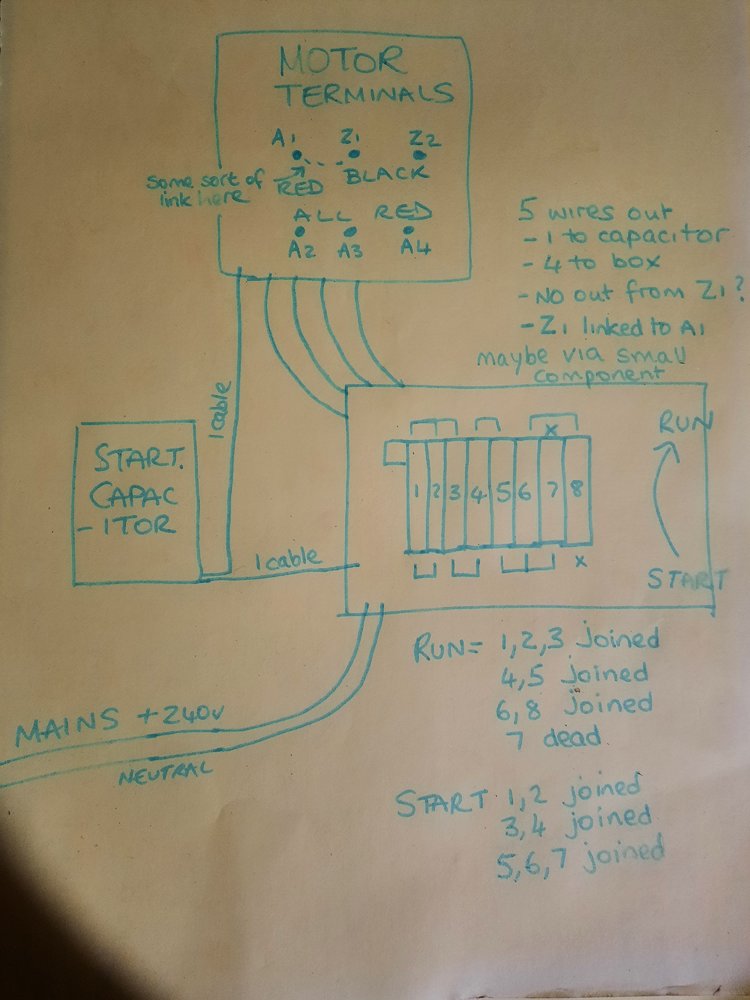 MOTOR
TERMINALS
A1 Z1 Z2
some sort of
link here
RED BLACK
ALL RED
A2 A3 A4
5 wires out
- 1 to capacitor
- 4 to box
- NO out from Z1?
- Z1 linked to A1
maybe via small
component
1 cable
START.
CAPAC
-ITOR
1 cable
x
1 2 3 4 5 6 7 8
x
RUN
START
RUN = 1,2,3 joined
4,5 joined
6,8 joined
7 dead
MAINS +240v
NEUTRAL
START 1,2 joined
3,4 joined
5,6,7 joined